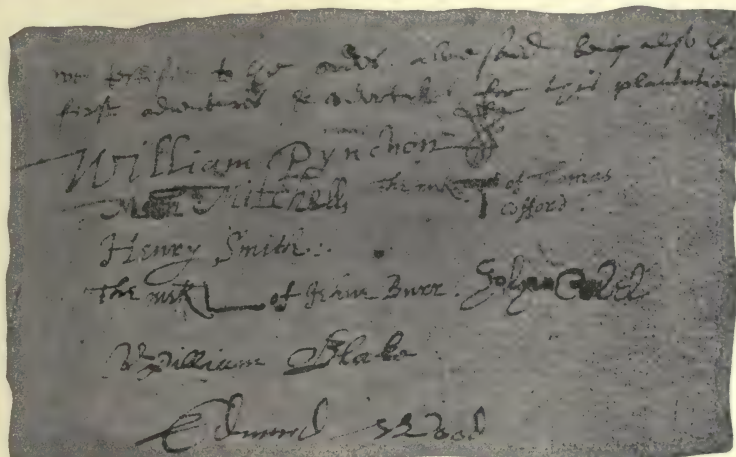 testifie to the order above said being also
first adventurers & undertakers for this plantation
William Pynchon
Matt Mitchell, The mrk of Thomas
ufford.
Henry Smith:.
The mrk of Jehue Burr.
William Blake
Edmund Wood